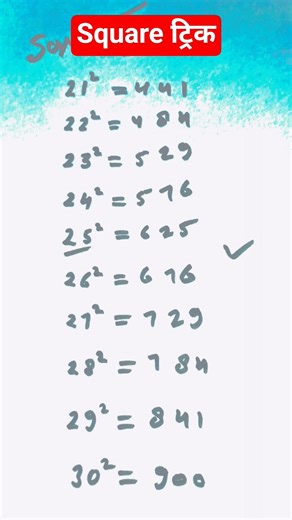 Square ट्रिक
21² = 441
22² = 484
23² = 529
24² = 576
25² = 625
26² = 676
27² = 729
28² = 784
29² = 841
30² = 900